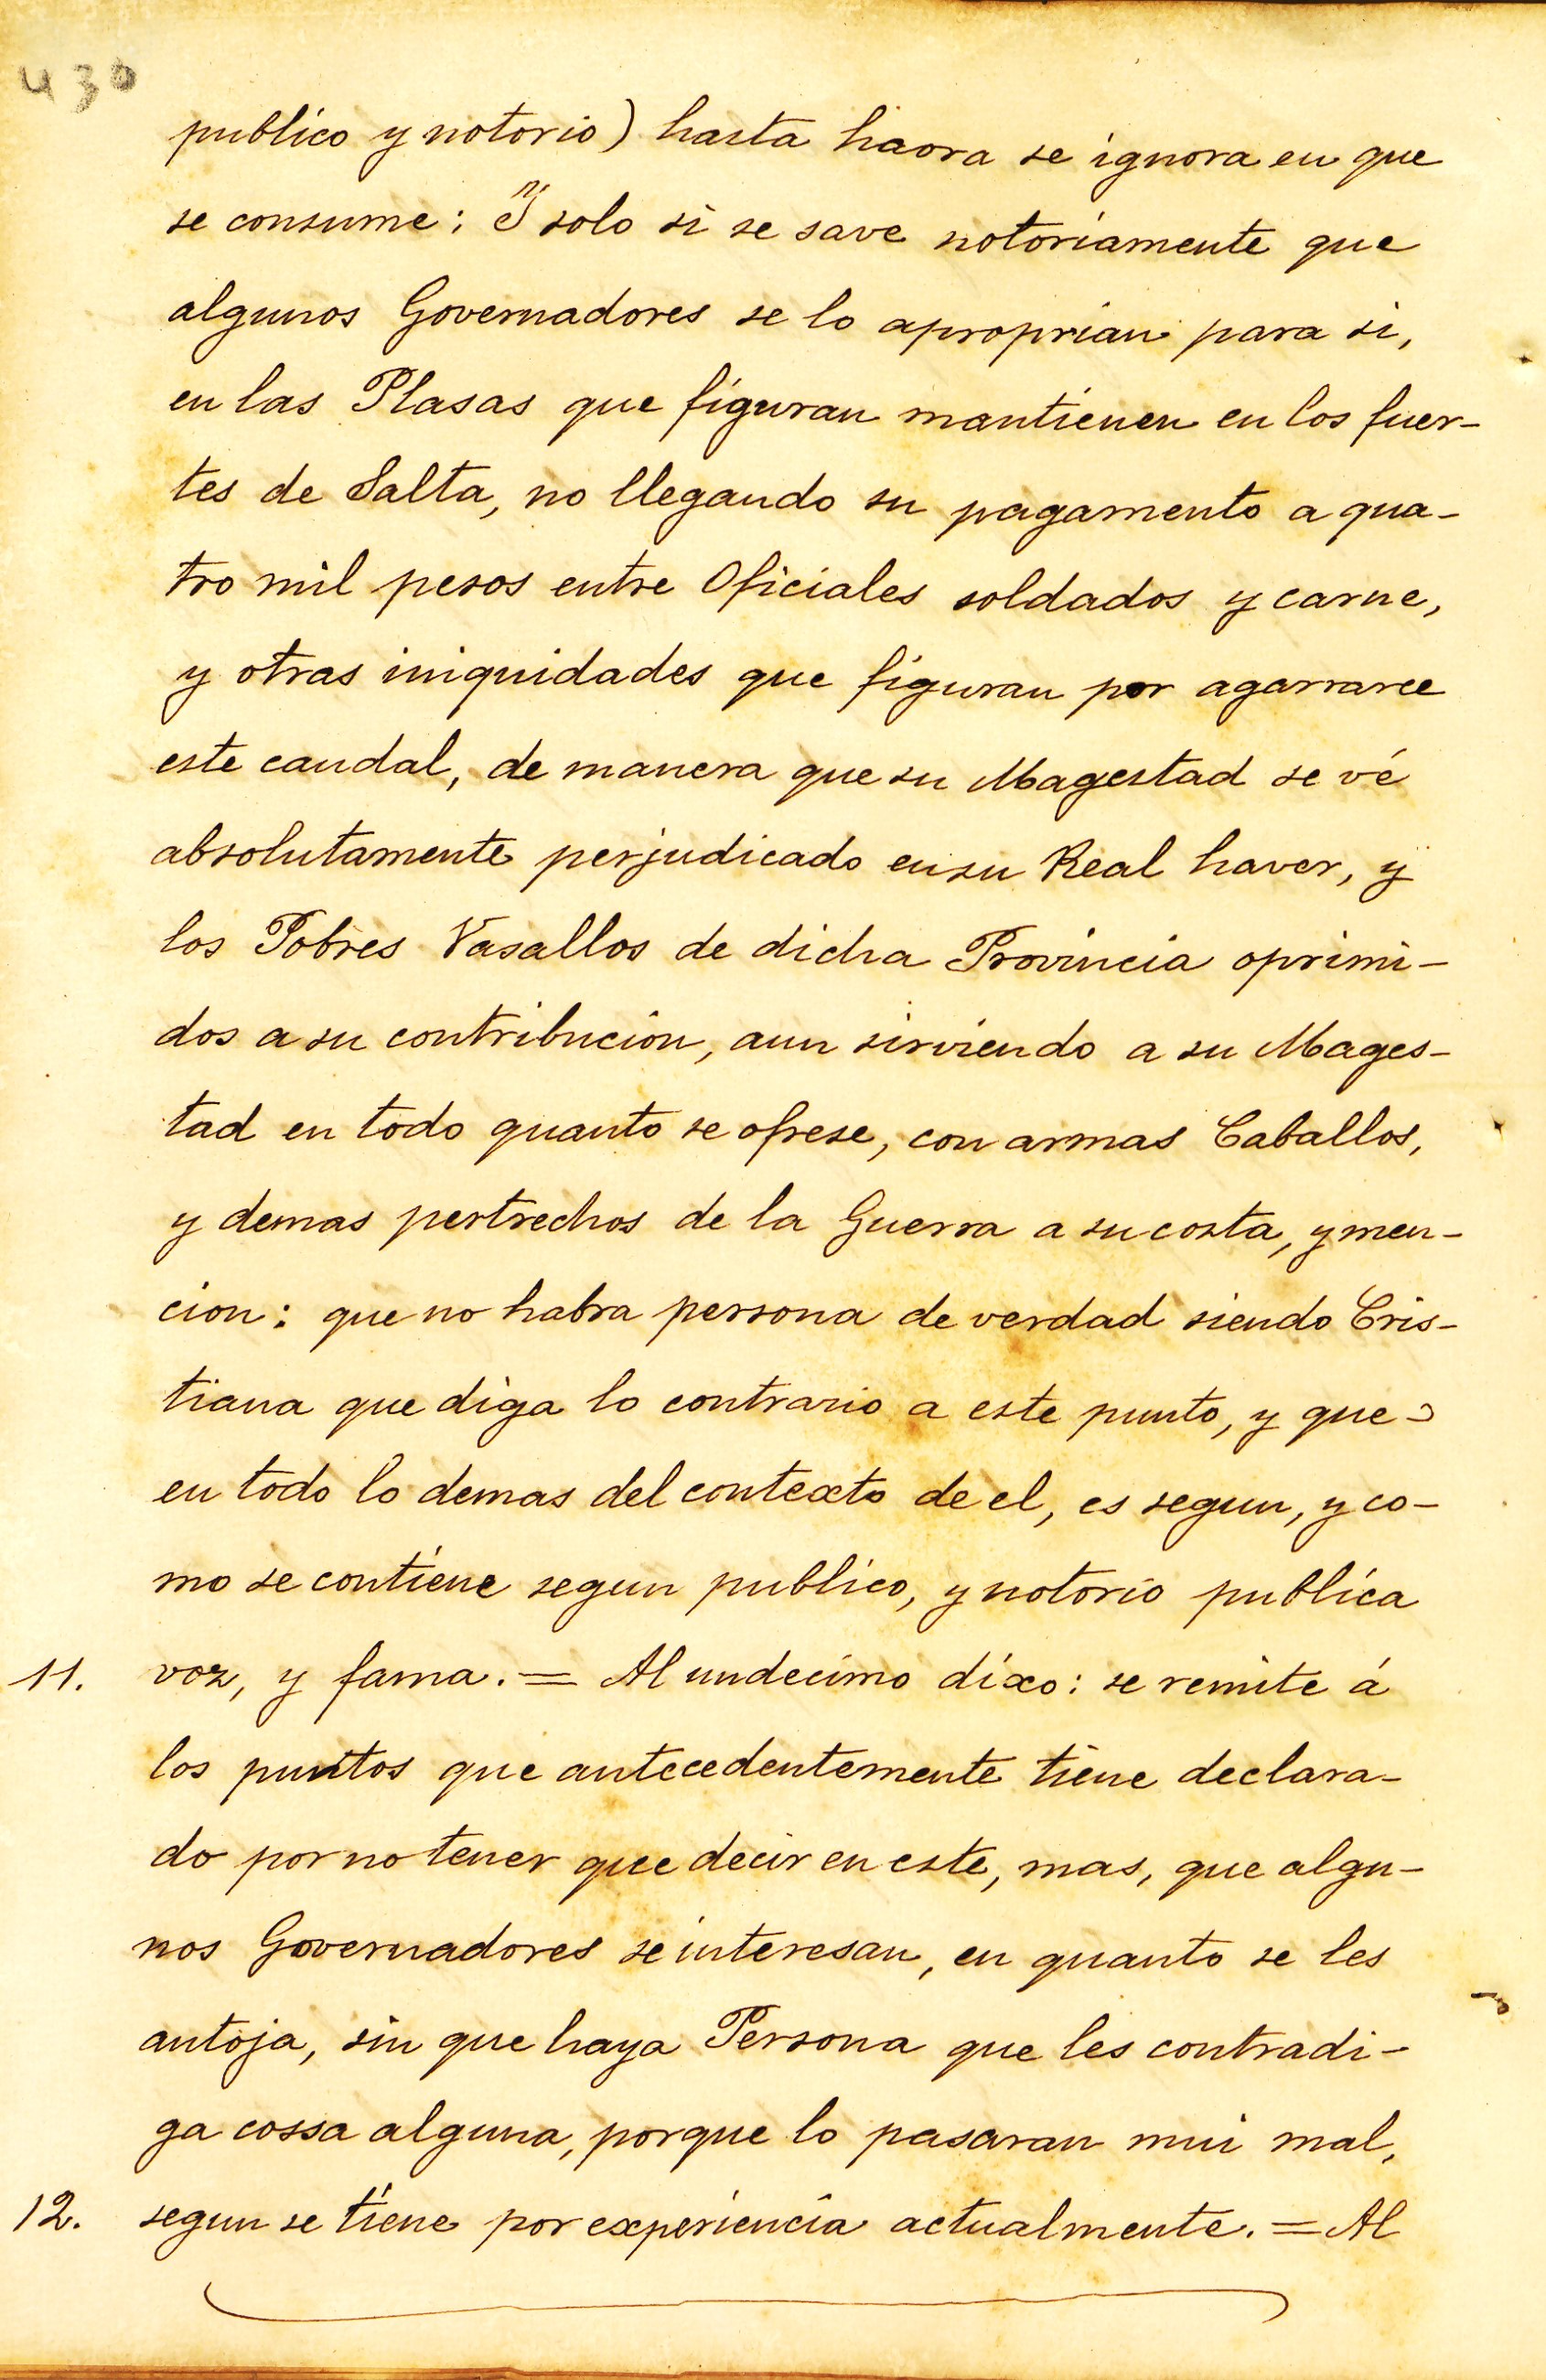 430
publico y notorio) hasta haora se ignora en que
se consume: Y solo si se save notoriamente que
algunos Governadores se lo aproprian para si,
en las Plasas que figuran mantienen en los fuer-
tes de Salta, no llegando su pagamento a qua-
tro mil pesos entre Oficiales soldados y carne,
y otras iniquidades que figuran por agarrarce
este caudal, de manera que su Magestad se vé
absolutamente perjudicado en su Real haver, y
los Pobres Vasallos de dicha Provincia oprimi-
dos a su contribucion, aun sirviendo a su Mages-
tad en todo quanto se ofrese, con armas Caballos,
y demas pertrechos de la Guerra a su costa, y men-
cion: que no habra persona de verdad siendo Cris-
tiana que diga lo contrario a este punto, y que
en todo lo demas del contexto de el, es segun, y co-
mo se contiene segun publico, y notorio publica
11. voz, y fama. = Al undecimo dixo: se remite á
los puntos que antecedentemente tiene declara-
do por no tener que decir en este, mas, que algu-
nos Governadores se interesan, en quanto se les
antoja, sin que haya Persona que les contradi-
ga cossa alguna, porque lo pasaran mui mal,
12. segun se tiene por experiencia actualmente. = Al